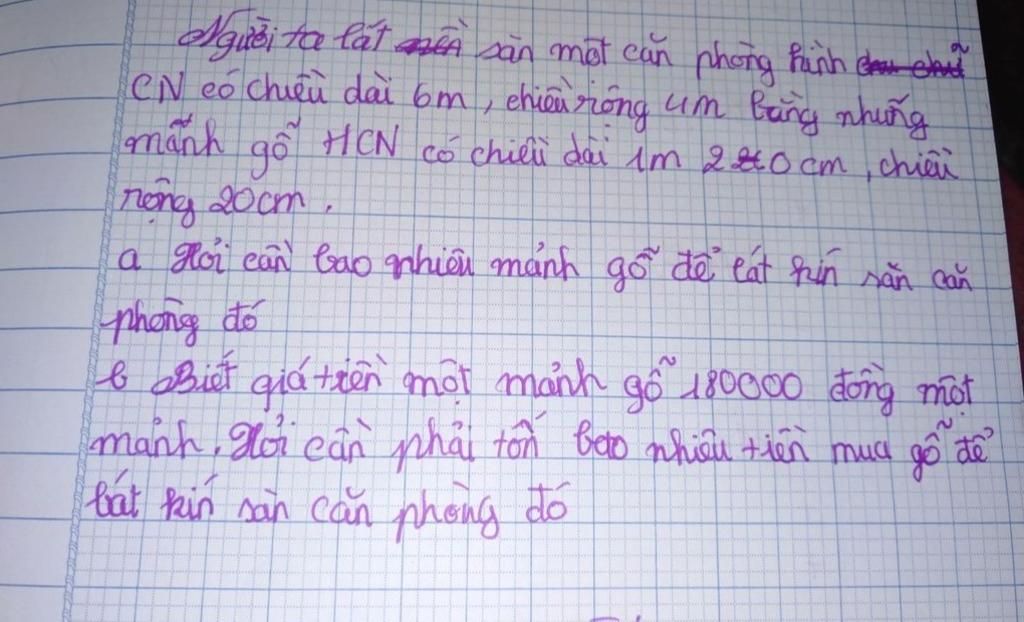 Người ta lát sàn một căn phòng hình
CN có chiều dài 6m, chiều rộng 4m bằng những
mảnh gỗ HCN có chiều dài 1m 20cm, chiều
rộng 20cm.
a Hỏi cần bao nhiêu mảnh gỗ để lát kín sàn căn
phòng đó
b Biết giá tiền một mảnh gỗ 180000 đồng một
mảnh. Hỏi cần phải tốn bao nhiêu tiền mua gỗ để
lát kín sàn căn phòng đó